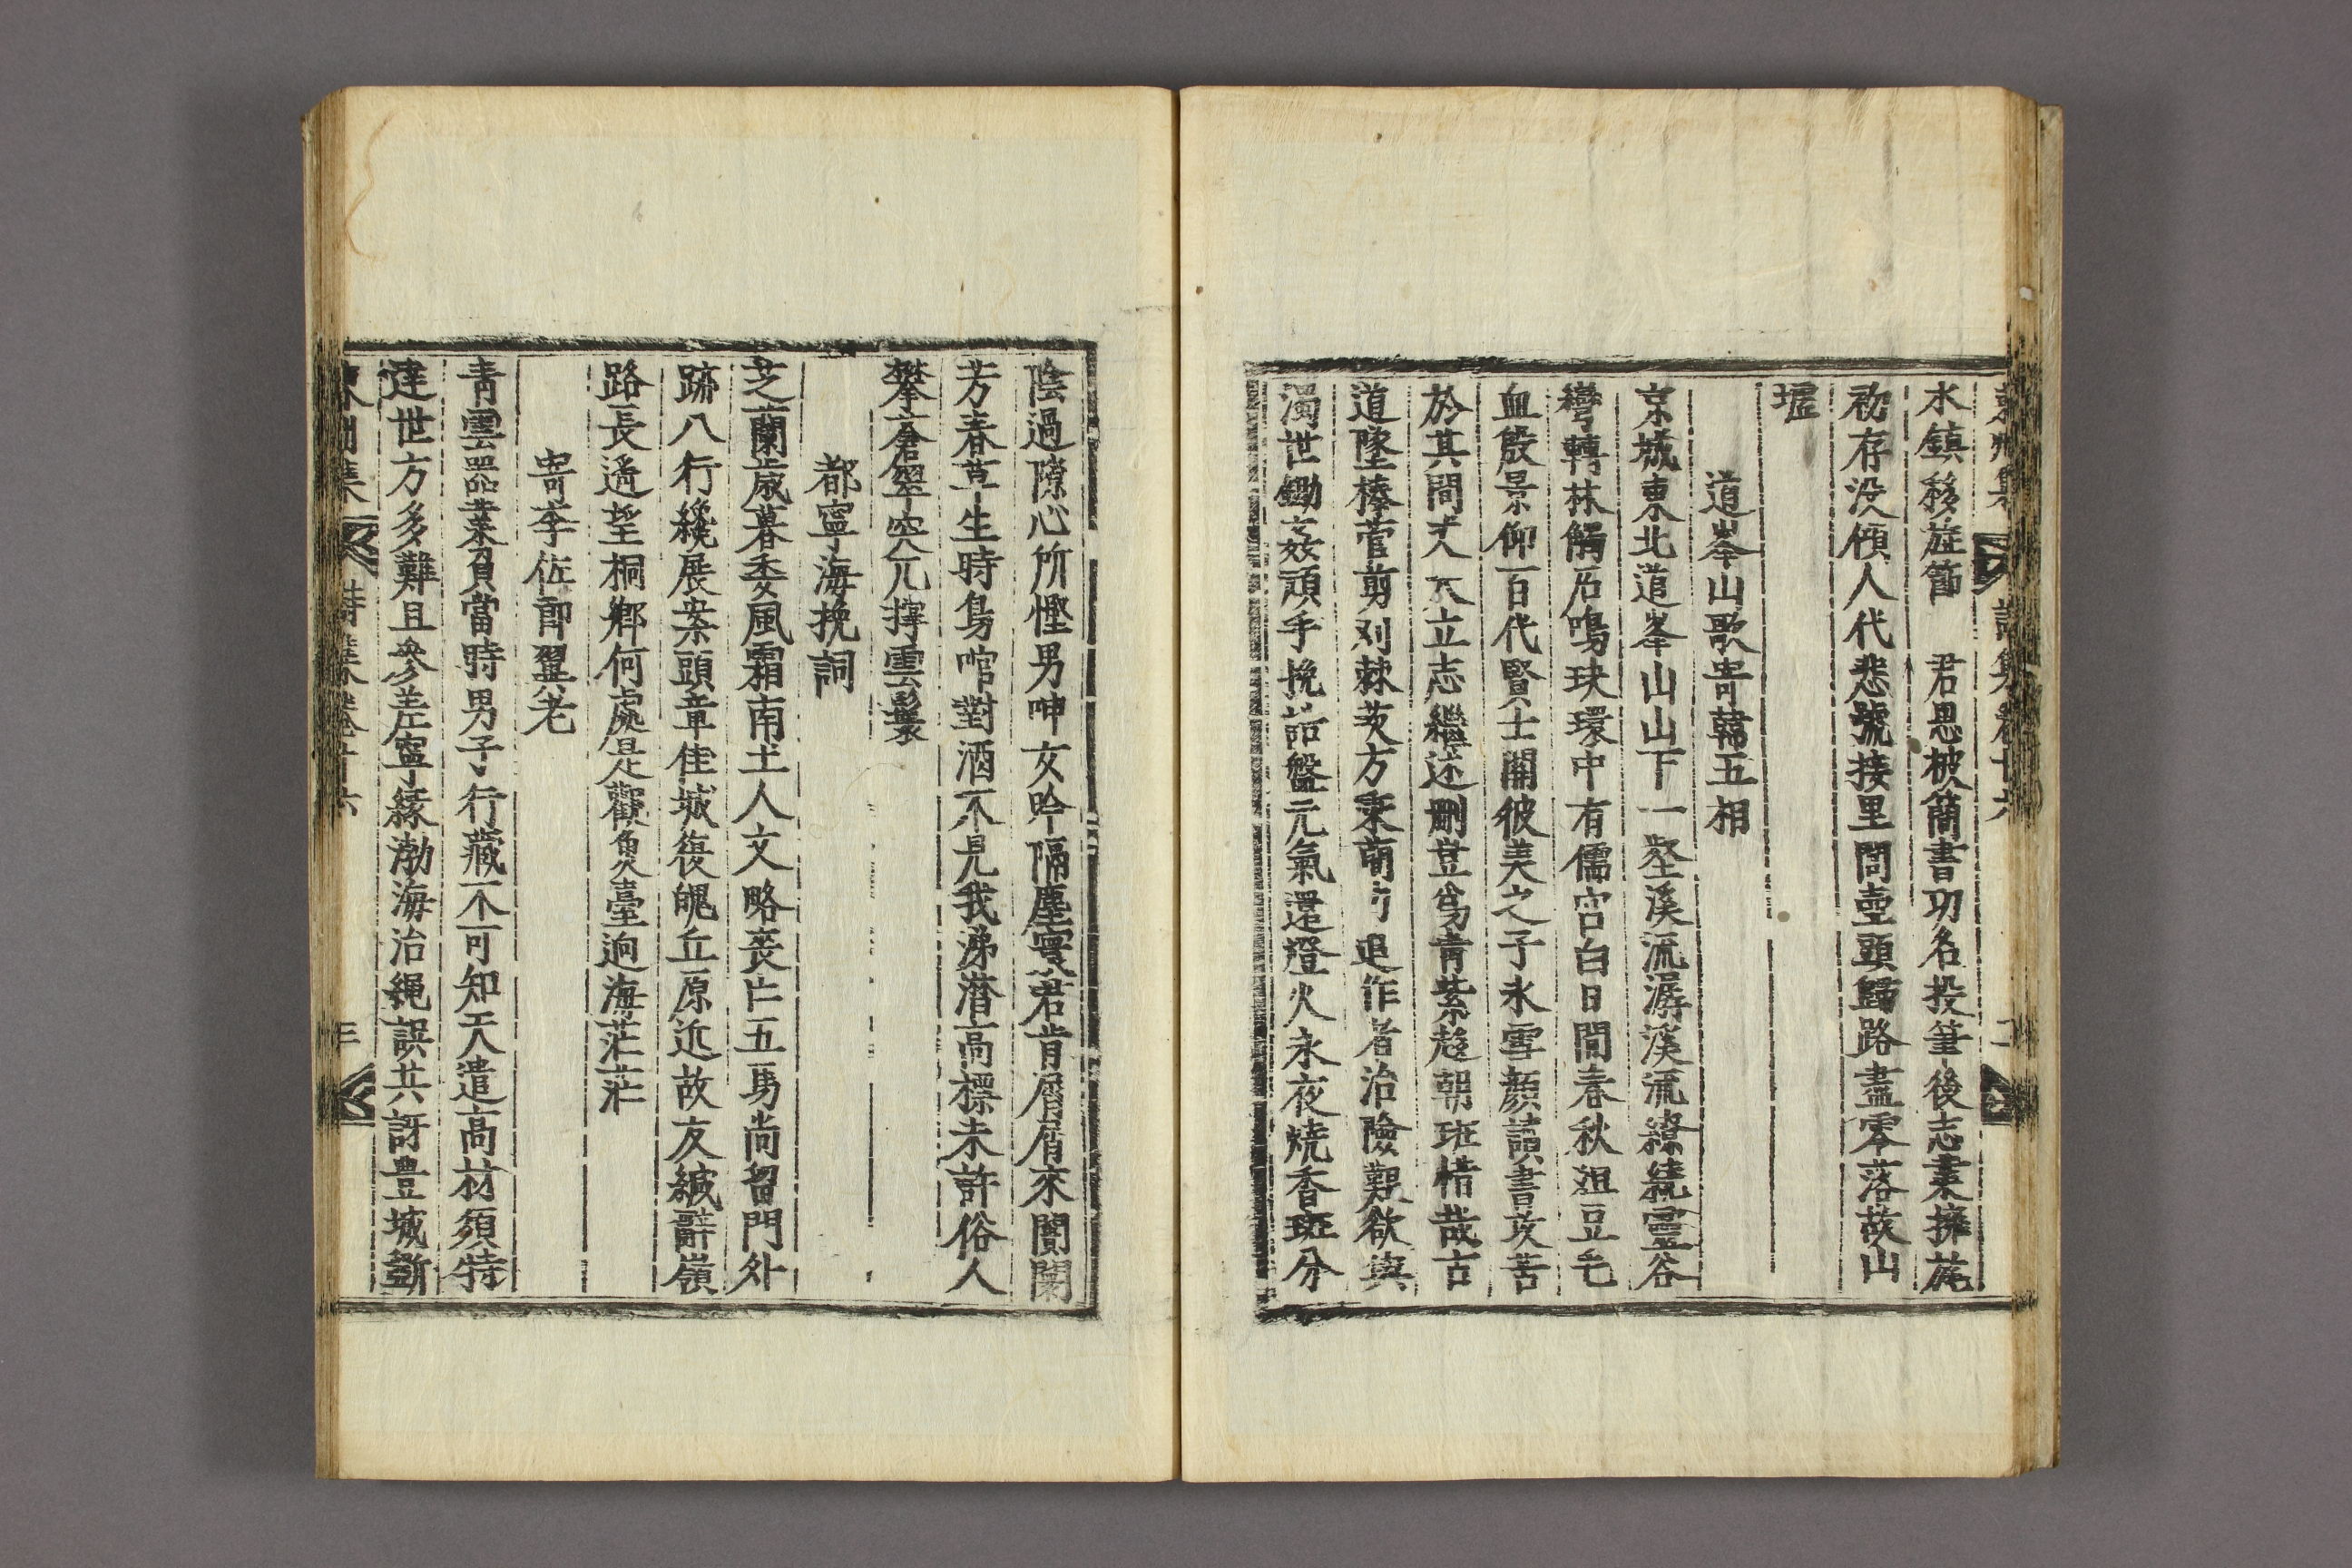 水鎮移旌節 君恩被簡書功名投筆後志業擁旄
初存没傾人代悲號接里閭壺頭歸路盡零落故山
墟
道峯山歌寄韓五相
京城東北道峯山山下一壑溪流潺溪流繚繞靈谷
彎轉林觸石鳴玦環中有儒宮白日閒春秋俎豆毛
血殷景仰百代賢士關彼美之子氷雪顔讀書攻苦
於其間丈人立志繼述刪豈爲靑紫趍朝班惜哉古
道墜榛菅剪刈棘茨方秉蕳追作者治險艱欲與
濁世鋤姦頑手挽誥盤元氣還燈火永夜燒香斑分
陰過隙心所慳男呻女吟隔塵寰君肯屑屑來闤闠
芳春草生時鳥喧對酒不見我涕潸高標未許俗人
攀蒼翠突兀擁雲鬟
都寧海挽詞
芝蘭歲暮委風霜南土人文略喪亡五馬尚留門外
跡八行纔展案頭章佳城復愧丘原近故友緘辭嶺
路長遙望桐鄕何處是觀魚臺逈海茫茫
寄李佐郎翼老
靑雲器業負當時男子行藏不可知天遣高材須特
達世方多難且參差寧緣渤海治繩誤共訝豊城斲
詩集卷十六
三